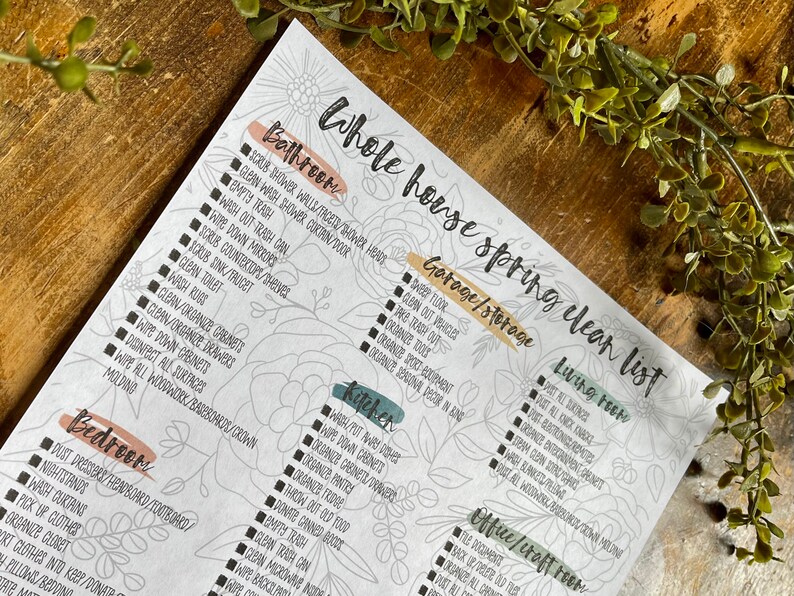 Whole house spring clean list
Bathroom
SCRUB SHOWER WALLS/FACETS/SHOWER HEADS
CLEAN WASH SHOWER CURTAIN/DOOR
EMPTY TRASH
WASH OUT TRASH CAN
WIPE DOWN MIRRORS
SCRUB COUNTERTOPS/SHELVES
SCRUB SINK/FACET
CLEAN TOILET
WASH RUGS
CLEAN/ORGANIZE CABINETS
CLEAN/ORGANIZE DRAWERS
WIPE DOWN CABINETS
DISINFECT ALL SURFACES
WIPE ALL WOODWORK/BASEBOARDS/CROWN
MOLDING
Bedroom
DUST DRESSERS/HEADBOARD/FOOTBOARD/
NIGHTSTANDS
WASH CURTAINS
PICK UP CLOTHES
ORGANIZE CLOSET
CLOTHES INTO KEEP/DONATE/
PILLOWS BEDDING
Garage/storage
SWEEP FLOOR
CLEAN OUT VEHICLES
TAKE TRASH OUT
ORGANIZE TOOLS
ORGANIZE SPORT EQUIPMENT
ORGANIZE SEASONAL DECOR IN BINS
Kitchen
WASH/PUT AWAY DISHES
WIPE DOWN CABINETS
ORGANIZE CABINETS/DRAWERS
ORGANIZE PANTRY
ORGANIZE FRIDGE
THROW OUT OLD FOOD
DONATE CANNED GOODS
EMPTY TRASH
CLEAN TRASH CAN
CLEAN MICROWAVE INSIDE
WIPE BACKSPLASH
WIPE
Living room
DUST ALL SURFACES
DUST ALL KNICK KNACKS
DUST ELECTRONICS/REMOTES
ORGANIZE ENTERTAINMENT CABINETS
STEAM CLEAN SOFAS/CHAIRS
WASH BLANKETS/PILLOWS
DUST ALL WOODWORK/BASEBOARD/CROWN MOLDING
Office/craft room
FILE DOCUMENTS
BACK UP/DELETE OLD FILES
ORGANIZE ALL
DUST ALL